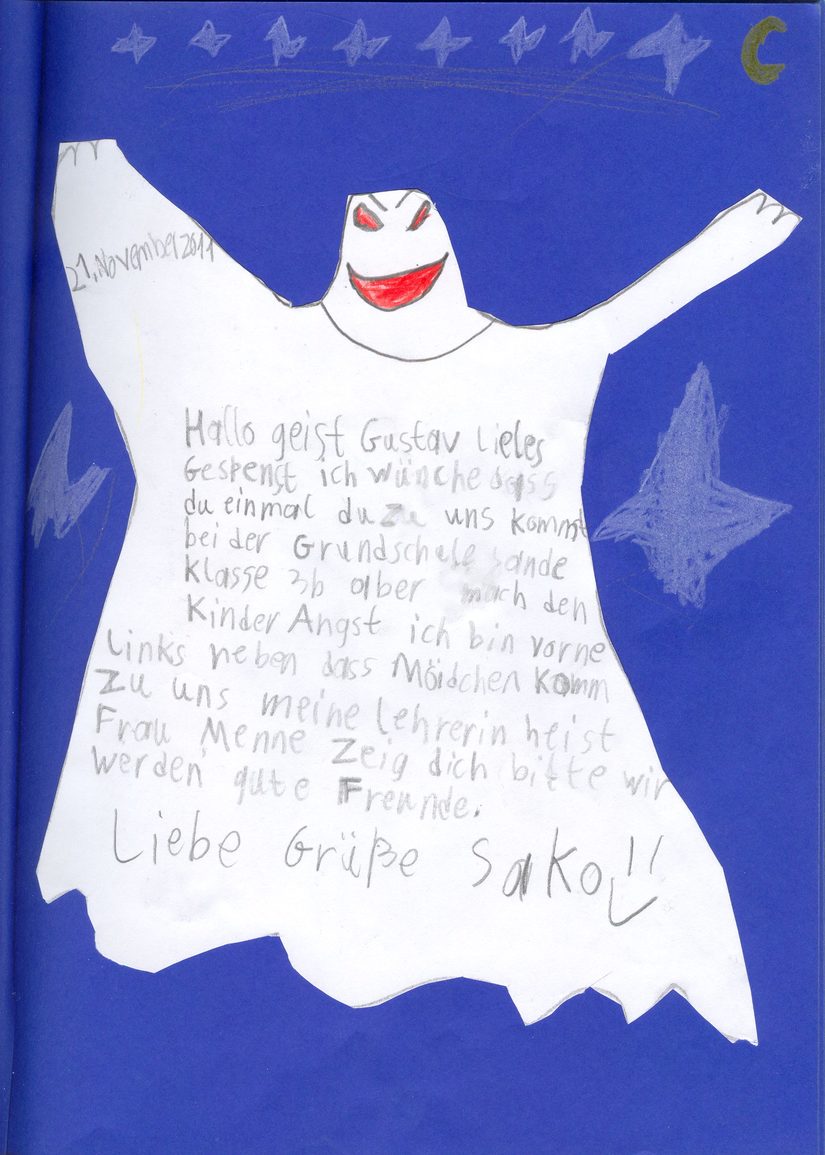 21. November 2011
Hallo geist Gustav Lieles
Gespenst ich wünche dass
du einmal du zu uns kommst
bei der Grundschule sande
Klasse 3b aber mach den
Kinder Angst ich bin vorne
Links neben dass Mäidchen Komm
Zu uns meine Lehrerin heist
Frau Menne Zeig dich bitte wir
werden gute Freunde.
Liebe Grüße Sako!!